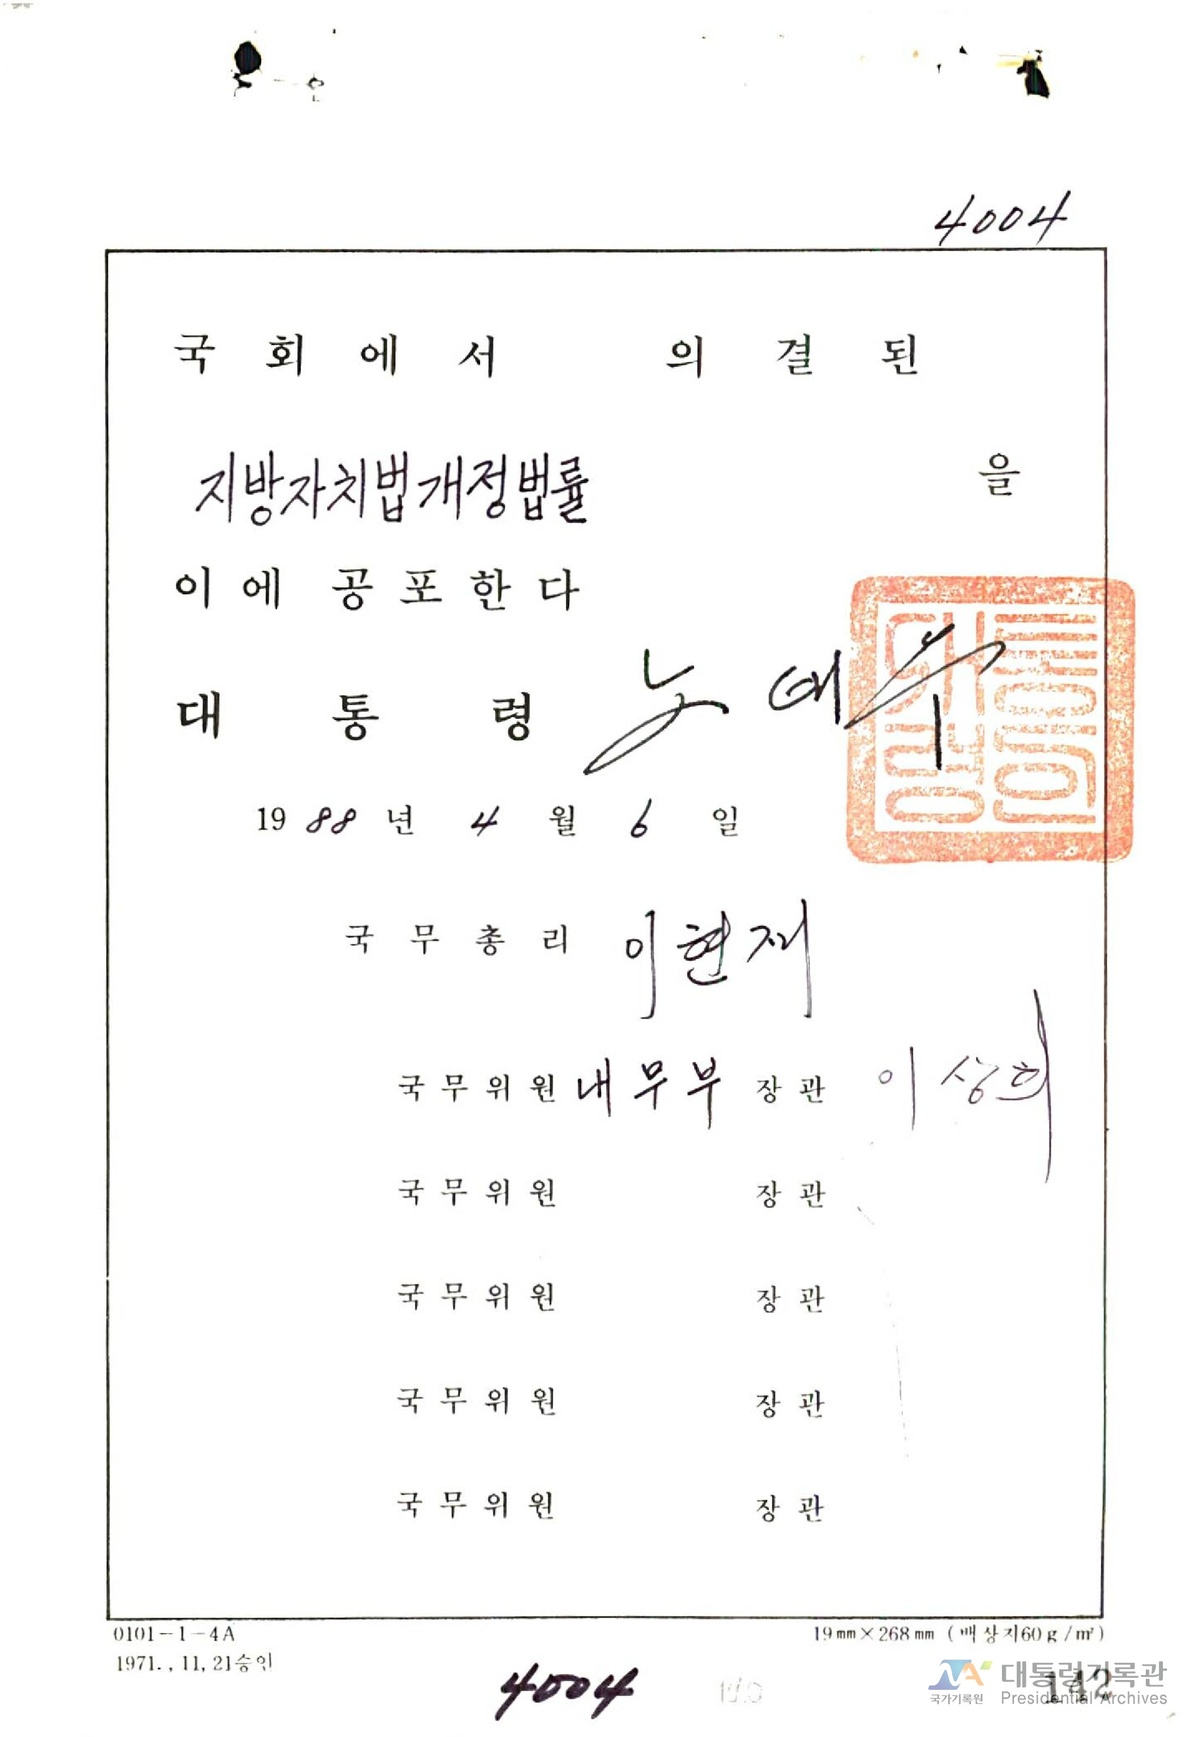 4004
국회에서 의결된
지방자치법개정법률 을
이에 공포한다
대통령 노태우
대통령의인
1988년 4월 6일
국무총리 이현재
국무위원 내무부 장관 이상희
국무위원 장관
국무위원 장관
국무위원 장관
국무위원 장관
0101-1-4A 19mm×268mm (백상지60g/㎡)
1971.,11,21승인
4004
142
대통령기록관
국가기록원 Presidential Archives